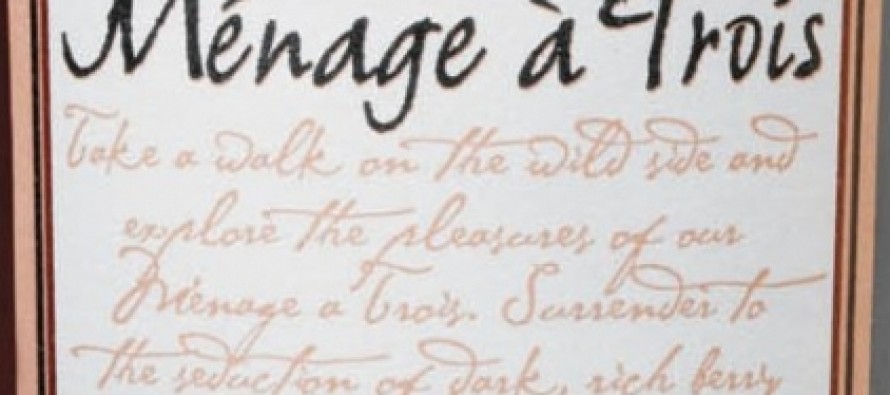 Ménage à Trois
Take a walk on the wild side and
explore the pleasures of our
Ménage a Trois. Surrender to
the seduction of dark, rich berry